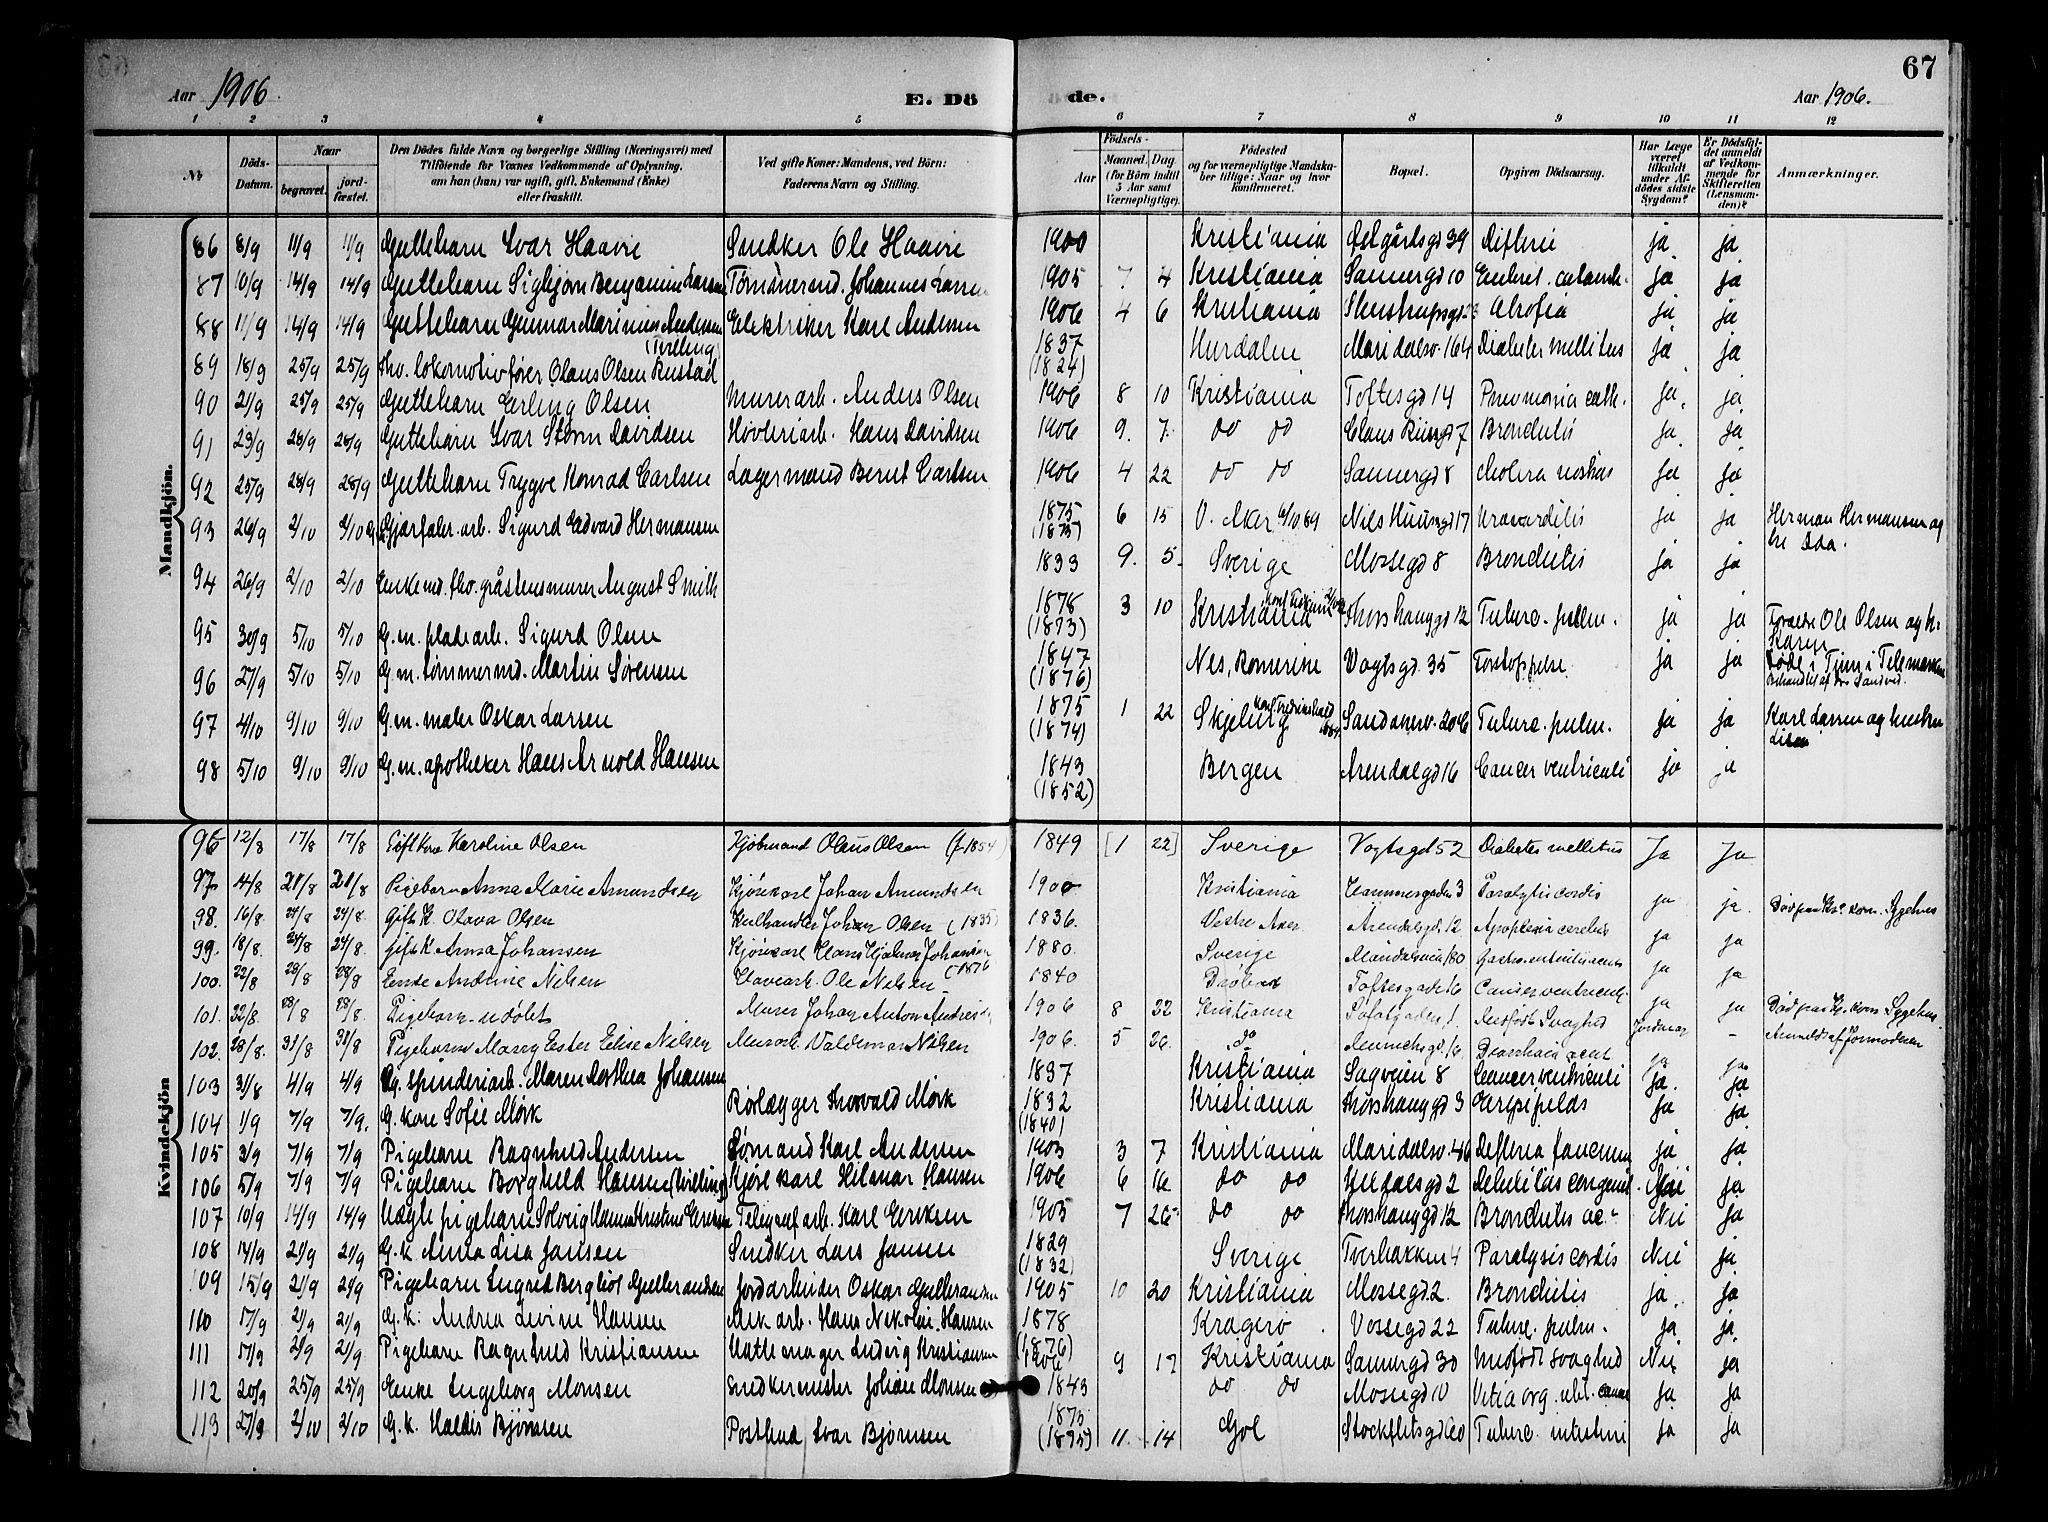 67
Aar 1906
E. Dö
de.
Aar 1906.
1 2 3 4 5 6 7 8 9 10 11 12
№ Döds-Datum. Naar begravet. jord-fæstet. Den Dödes fulde Navn og borgerlige Stilling (Næringsvei) med Tilföiende for Voxnes Vedkommende af Oplysning, om han (hun) var ugift, gift, Enkemand (Enke) eller fraskilt. Ved gifte Koner: Mandens, ved Börn: Faderens Navn og Stilling. Födsels- Aar Maaned. Dag (for Börn indtil 5 Aar samt Værnepligtige). Födested og for værnepligtige Mandska-ber tillige: Naar og hvor konfirmeret. Bopæl. Opgiven Dödsaarsag. Har Læge været tilkaldt under Af-dödes sidste Sygdom? Er Dödsfal-det anmeldt af Vedkom-mende for Skifteretten (Lensman-den)? Anmærkninger.
Mandkjön.
86 8/9 11/9 11/9 Guttebarn Ivar Haavi Snedker Ole Haavi 1900 Kristiania Difteri ja ja
87 10/9 14/9 14/9 Guttebarn Sigbjørn Benjamin Larsen Tømmermd. Johannes Larsen 1905 7 4 Kristiania Sannergd 10 ja ja
88 11/9 14/9 14/9 Guttebarn Gunnar Marinius Andersen (Tvilling) Elektriker Karl Andersen 1906 4 6 Kristiania Atrofia ja ja
89 18/9 25/9 25/9 fhv. lokomotivfører Olaus Olsen Rustad 1837 (1824) Hurdalen Maridalsv. 164 Diabetes mellitus ja ja
90 21/9 25/9 25/9 Guttebarn Erling Olsen Murerarb. Anders Olsen 1906 8 10 Kristiania Toftesgd 14 Pneumonia cath. ja ja
91 23/9 28/9 28/9 Guttebarn Ivar Storm Davidsen Høvleriarb. Hans Davidsen 1906 9 7 do do Claus Riisgd 7 Bronchitis ja ja
92 25/9 28/9 28/9 Guttebarn Trygve Konrad Carlsen Lagermand Bernt Carlsen 1906 4 22 do do Sannergd 8 Cholera nostras ja ja
93 26/9 2/10 2/10 Sigurd Edvard Hermansen 1875 (1875) 6 15 V. Aker 6/10 89 Nils Huusgd 17 ja ja Herman Hermansen og
94 26/9 2/10 2/10 Enkemd. fhv. gråstensmurer August Smith 1833 9 5 Sverige Mossegd 8 Bronchitis ja ja
95 30/9 5/10 5/10 G. m. pladearb. Sigurd Olsen 1878 (1873) 3 10 Kristiania Thorshauggd 12 Tuberc. pulm. ja ja Forældre Ole Olsen og h. Karen
96 27/9 5/10 5/10 G. m. tømmermd. Martin Sørensen 1847 (1876) Nes, Romerike Vogtsgd. 35 Forstoppelse ja ja Døde i Tinn i Telemarken
97 4/10 9/10 9/10 G. m. maler Oskar Larsen 1875 (1874) 1 22 Skjeberg Sandakerv. 20 Tuberc. pulm. ja ja Karl Larsen og hustru
98 5/10 9/10 9/10 G. m. apotheker Hans Arnold Hansen 1843 (1852) Bergen Arendalsgd 16 Cancer ventriculi ja ja
Kvindekjön
96 12/8 17/8 17/8 Gift Kone Karoline Olsen Kjöbmand Olaus Olsen (f. 1854) 1849 [1 22] Sverige Vogtsgd 52 Diabetes mellitus Ja Ja
97 14/8 21/8 21/8 Pigebarn Anna Marie Amundsen Kjörekarl Johan Amundsen 1900 Kristiania 3 Paralysis cordis ja ja.
98. 16/8. 24/8 24/8. Gift K. Olava Olsen Johan Olsen (1835) 1836. Vestre Aker Arendalsgd. 12 Apoplexia cerebri ja ja
99. 18/8. 24/8 24/8. Gift K Anna Johansen Kjörekarl Hans Hjalmar Johansen (1876 1880. Sverige ja ja
100. 22/8 28/8 28/8 Enke Andrine Nilsen Ole Nilsen 1840 Toftesgade 16 Cancer ventriculi ja ja
101. 22/8. 28/8 28/8. Pigebarn udöbt Murer Johan Anton 1906 8 22 Kristiania Medfödt Svaghed Jordmor –
102. 28/8. 31/8 31/8 Pigebarn Marry Ester Elise Nilsen Murarb. Valdemar Nilsen 1906. 5 26. do ja ja
103 31/8 4/9 4/9 Maren Dorthea Johansen 1837 Kristiania Sagveien 8 Cancer ventriculi ja. ja
104 1/9 7/9 7/9. G. kone Sofie Mørk Rørlægger Thorvald Mørk 1832 (1840) Kristiania Thorshauggd 3 Erysipelas ja ja
105 3/9 7/9 7/9 Pigebarn Ragnhild Andersen Sømand Karl Andersen 1903 3 7 Kristiania Maridalsv. 46 Difteria faucium ja ja
106 5/9 7/9 7/9 Pigebarn Borghild Hansen (Tvilling) Kjørekarl Hilmar Hansen 1906 6 16 do do Uddalsgd 2 Debilitas congenit. Nei ja
107 10/9 14/9 14/9 Uægte pigebarn Solveig Telegrafarb. Karl Eriksen 1905 7 26 do do Thorshauggd 12 Bronchitis ac. Nei ja
108 14/9 21/9 21/9 G. k. Anna Lisa Jansen Snedker Lars Jansen 1829 (1832) Sverige Tverbakken 4 Paralysis cordis Nei ja
109 15/9 21/9 21/9 Pigebarn Ingrid Bergliot Gulbrandsen Jordarbeider Oskar Gulbrandsen 1905 10 20 Kristiania Mossegd 2. Bronchitis ja. ja
110 17/9 21/9 21/9 G. k. Andrea Livine Hansen Mek arb. Hans Nikolai Hansen 1878 (1876) Kragerø Vossegd 22 Tuberc. pulm. ja ja
111 17/9 21/9 21/9 Pigebarn Ragnhild Kristiansen Ludvig Kristiansen 1906 9 17 Kristiania Sannergd 30 Medfødt svaghed Nei ja
112 20/9 25/9 25/9 Enke Ingeborg Monsen Snedkermester Johan Monsen 1843 do do Mossegd 10 ja ja
113 27/9 2/10 2/10 G. k. Haldis Bjørnsen Postbud Ivar Bjørnsen 1875 (1875) 11 14 Gol Tuberc. intestini ja ja